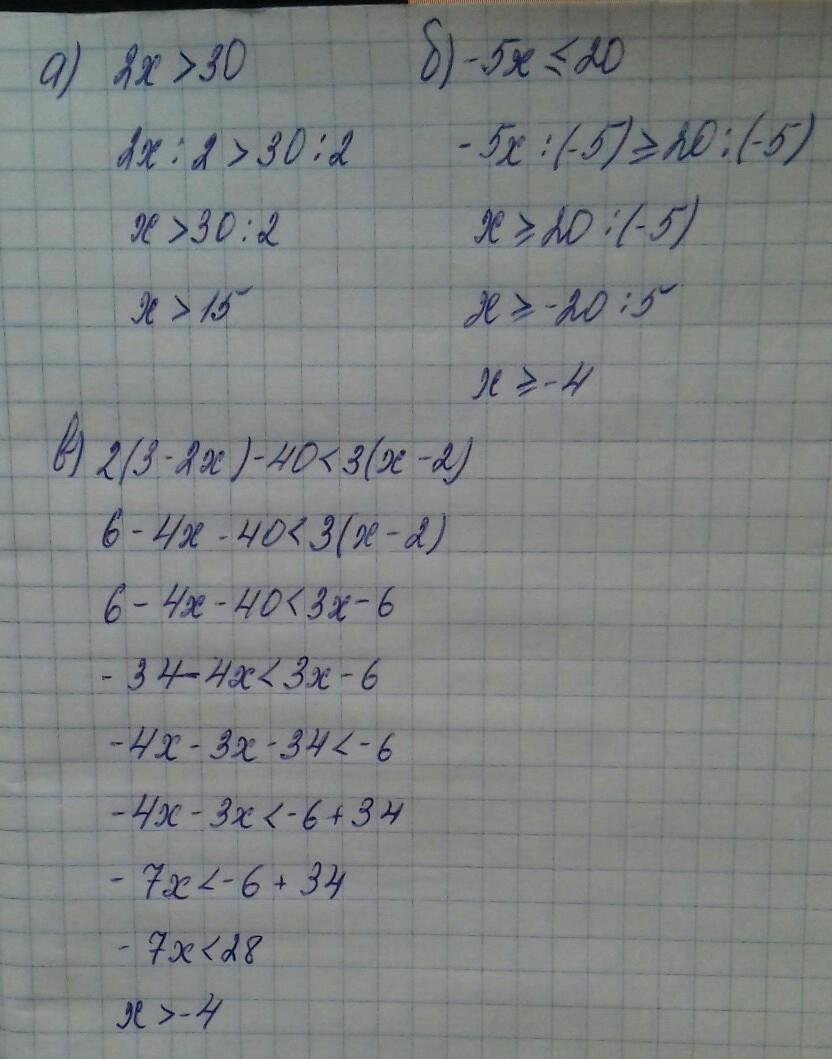 а) 2x > 30
2x : 2 > 30 : 2
x > 30 : 2
x > 15
б) -5x ≤ 20
-5x : (-5) ≥ 20 : (-5)
x ≥ 20 : (-5)
x ≥ -20 : 5
x ≥ -4
в) 2(3 - 2x) - 40 < 3(x - 2)
6 - 4x - 40 < 3(x - 2)
6 - 4x - 40 < 3x - 6
- 34 - 4x < 3x - 6
-4x - 3x - 34 < -6
-4x - 3x < -6 + 34
- 7x < -6 + 34
- 7x < 28
x > -4